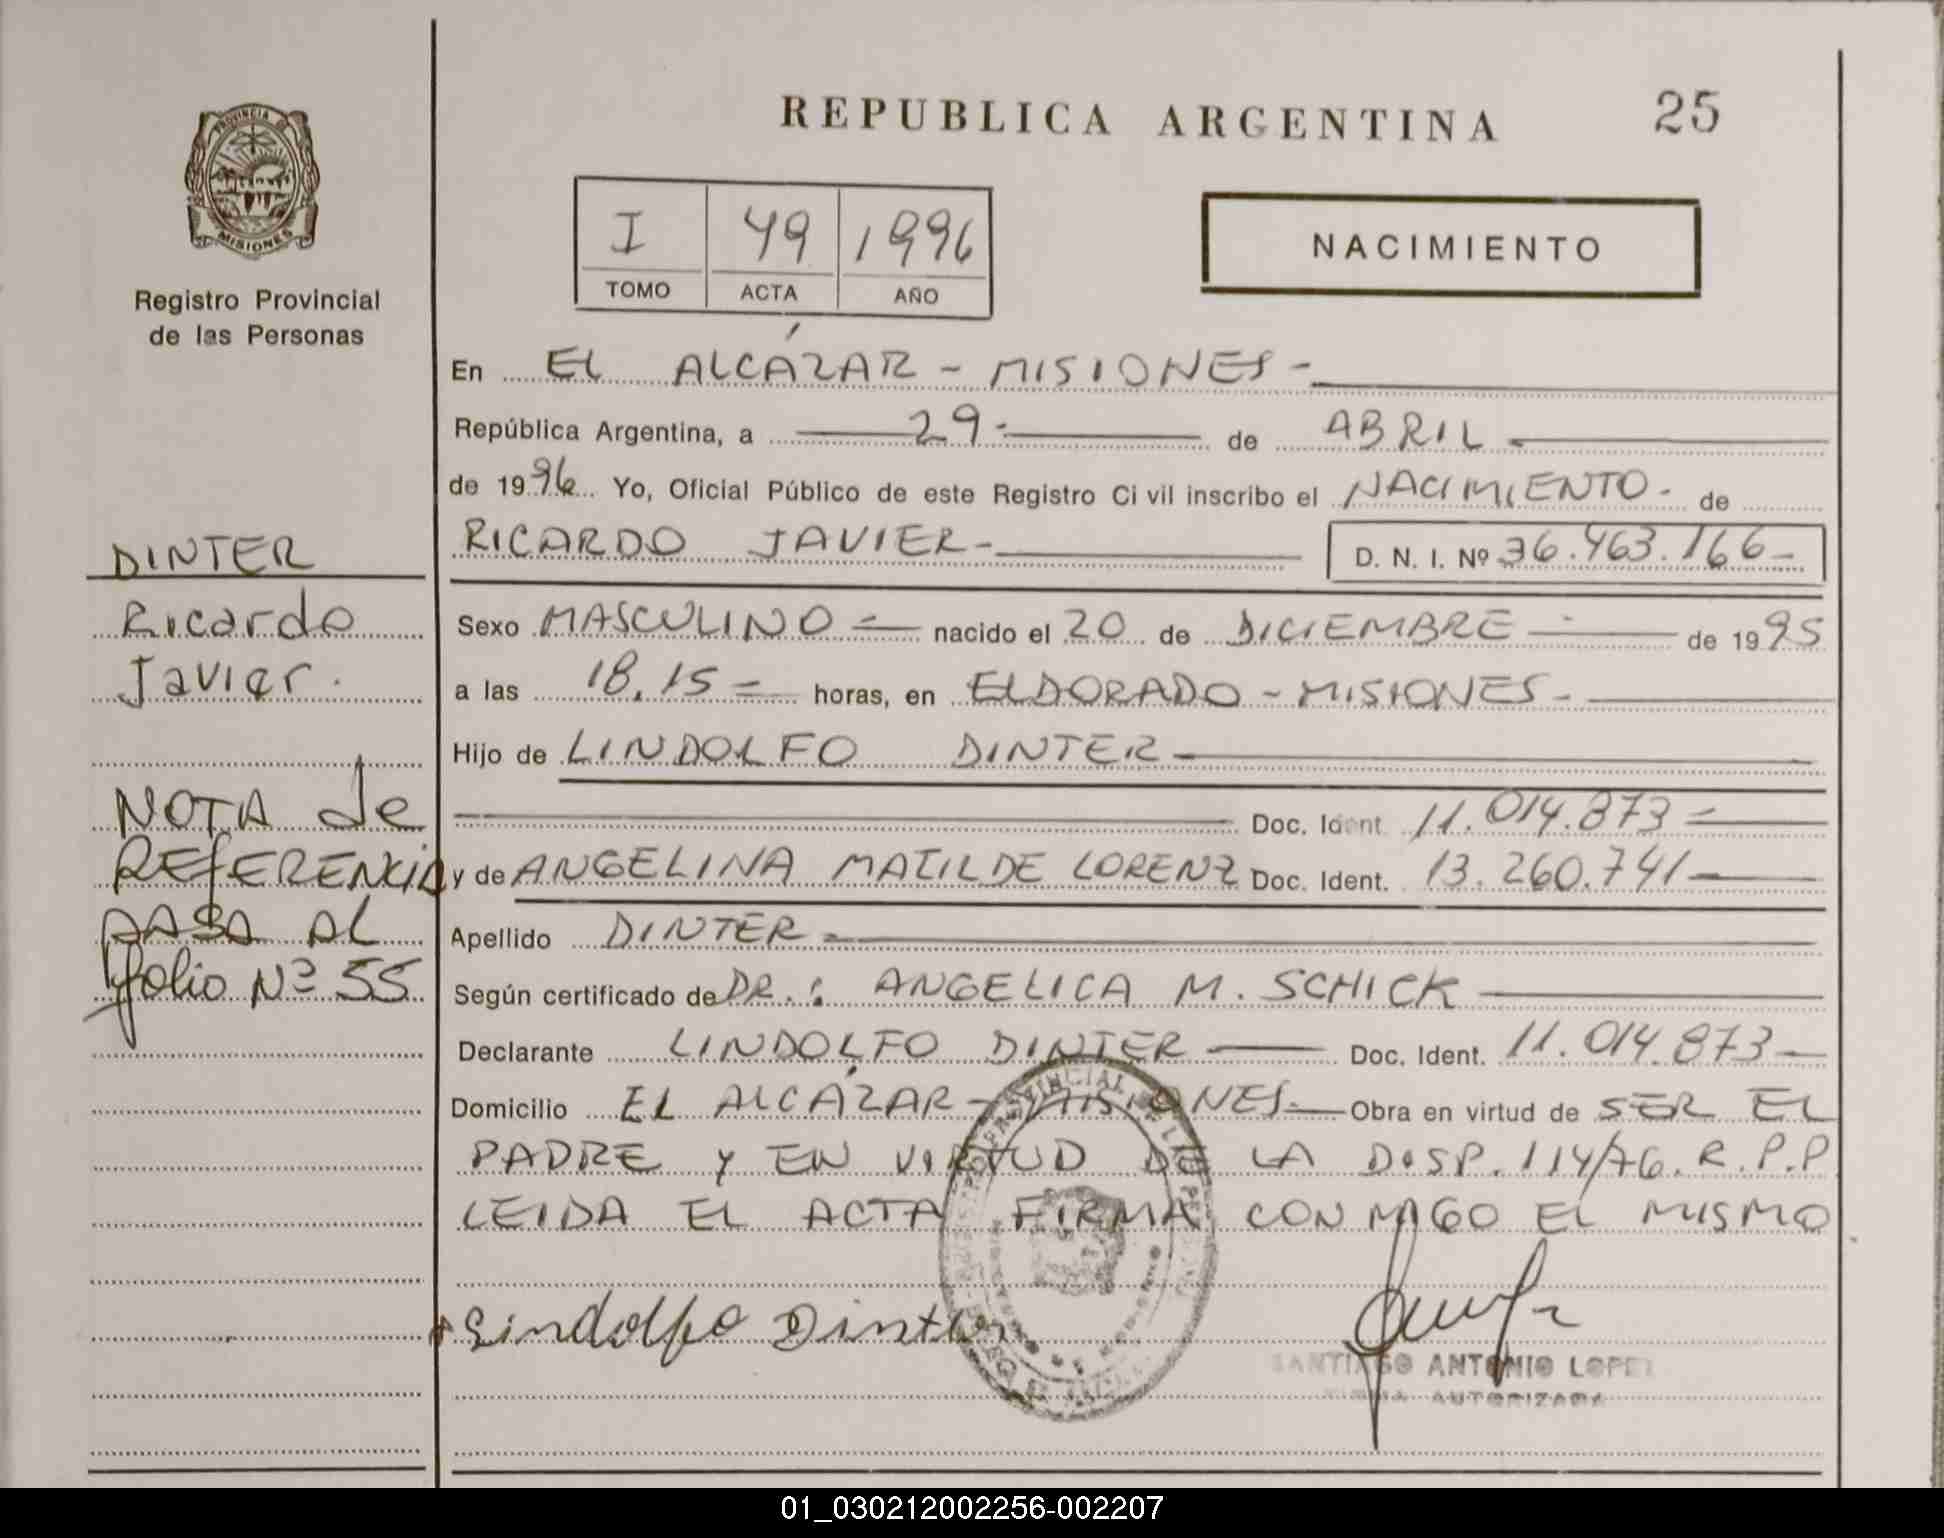 REPUBLICA ARGENTINA
25
PROVINCIA DE
MISIONES
Registro Provincial
de las Personas
I 49 1996
TOMO ACTA AÑO
NACIMIENTO
En EL ALCÁZAR - MISIONES -
República Argentina, a 29 - de ABRIL
de 1996 Yo, Oficial Público de este Registro Ci vil inscribo el NACIMIENTO - de
RICARDO JAVIER - D. N. I. Nº 36.463.166 -
Sexo MASCULINO = nacido el 20 de DICIEMBRE de 1995
a las 18.15 = horas, en ELDORADO - MISIONES -
Hijo de LINDOLFO DINTER
Doc. Ident 11.014.873 =
y de ANGELINA MATILDE LORENZ Doc. Ident. 13.260.741
Apellido DINTER
Según certificado de DR.: ANGELICA M. SCHICK
Declarante LINDOLFO DINTER Doc. Ident. 11.014.873
Domicilio EL ALCÁZAR - MISIONES - Obra en virtud de SER EL
PADRE y EN VIRTUD DE LA DISP. 114/76. R.P.P
LEIDA EL ACTA FIRMA CONMIGO EL MISMO
Lindolfo Dinter
SANTIAGO ANTONIO LOPEZ
FIRMA AUTORIZADA
DINTER
Ricardo
Javier.
NOTA de
REFERENCIA
PASA AL
folio Nº 55
01_030212002256-002207